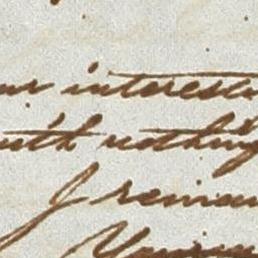 ur interest
with nothing
I remain
Yours